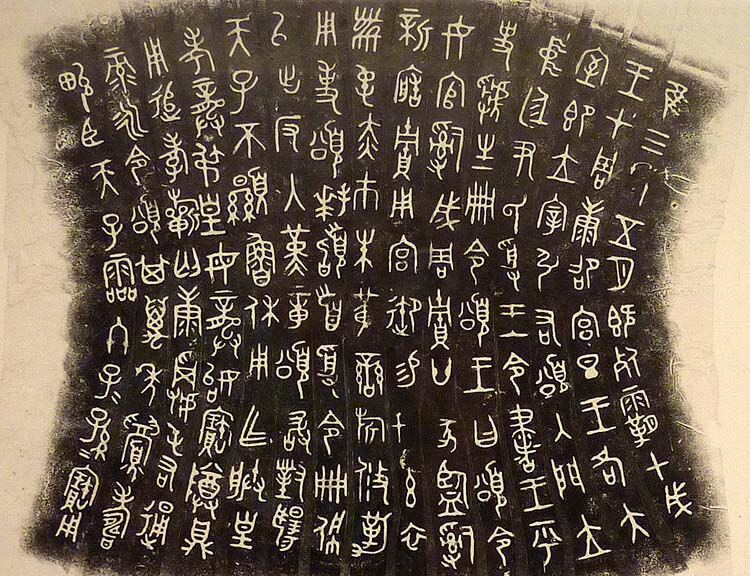 隹三年五月既死霸甲戌
王才周康卲宮旦王各大
室即立宰引右頌入門立
中廷尹氏受王令書王乎
史虢生冊令頌王曰頌令
女官𤔲成周賈廿家監𤔲
新造賈用宮御易女玄衣
黹屯赤巿朱黃鑾旂攸勒
用事頌拜𩒨首受令冊佩
以出反入堇章頌敢對揚
天子不顯魯休用乍朕皇
考龔叔皇母龔姒寶尊鼎
用追孝祈匄康𩛥屯右通
彔永令頌其萬年眉壽
畯臣天子霝冬子=孫=寶用